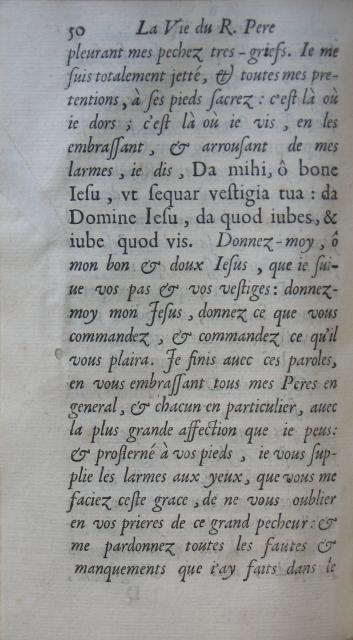 50 La Vie du R. Pere
pleurant mes pechez tres-griefs. Ie me
ſuis totalement jetté, & toutes mes pre-
tentions, à ſes pieds ſacrez : c'eſt là où
ie dors ; c'eſt là où ie vis, en les
embraſſant, & arrouſant de mes
larmes, ie dis, Da mihi, ô bone
Ieſu, vt ſequar veſtigia tua : da
Domine Ieſu, da quod iubes, &
iube quod vis. Donnez-moy, ô
mon bon & doux Ieſus, que ie ſui-
ue vos pas & vos veſtiges : donnez-
moy mon Jeſus, donnez ce que vous
commandez, & commandez ce qu'il
vous plaira. Je finis auec ces paroles,
en vous embraſſant tous mes Peres en
general, & chacun en particulier, auec
la plus grande affection que ie peus:
& proſterné à vos pieds, ie vous ſup-
plie les larmes aux yeux, que vous me
faciez ceſte grace, de ne vous oublier
en vos prieres de ce grand pecheur : &
me pardonnez toutes les fautes &
manquements que i'ay faits dans le